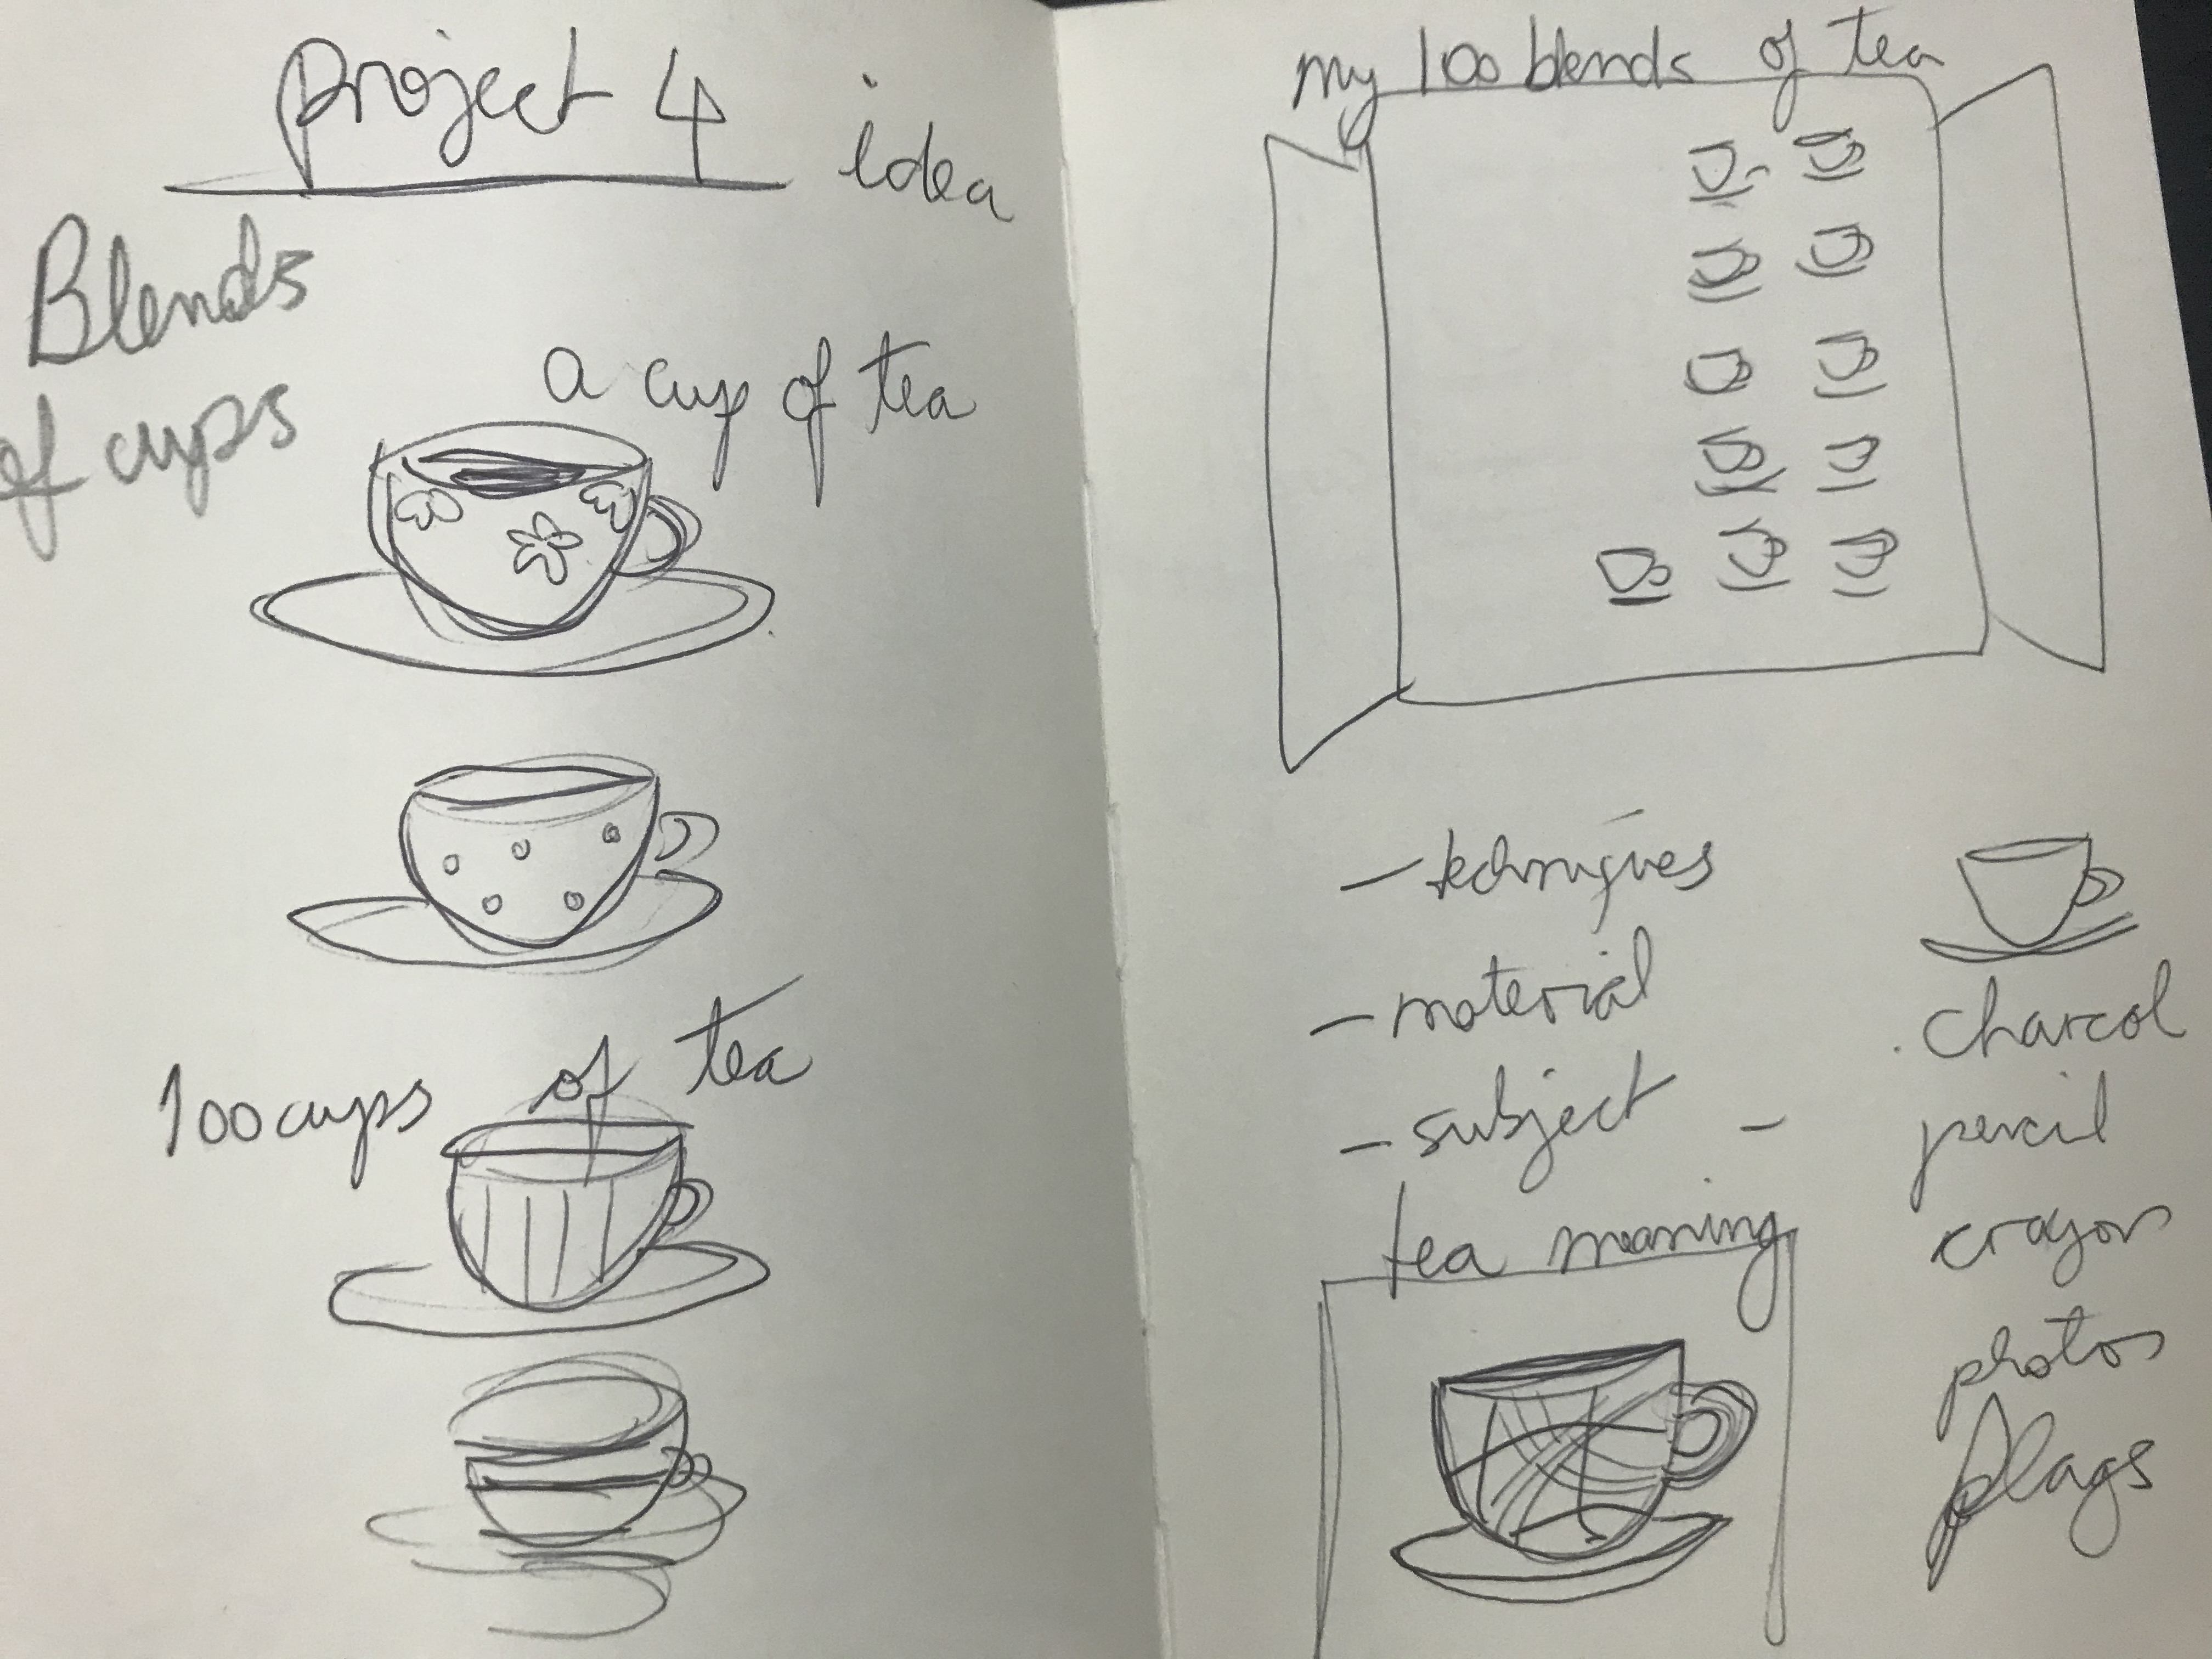 project 4
idea
Blends
of cups
a cup of tea
100 cups of tea
my 100 blends of tea
- techniques
- material
- subject -
tea meaning
. charcol
pencil
crayon
photos